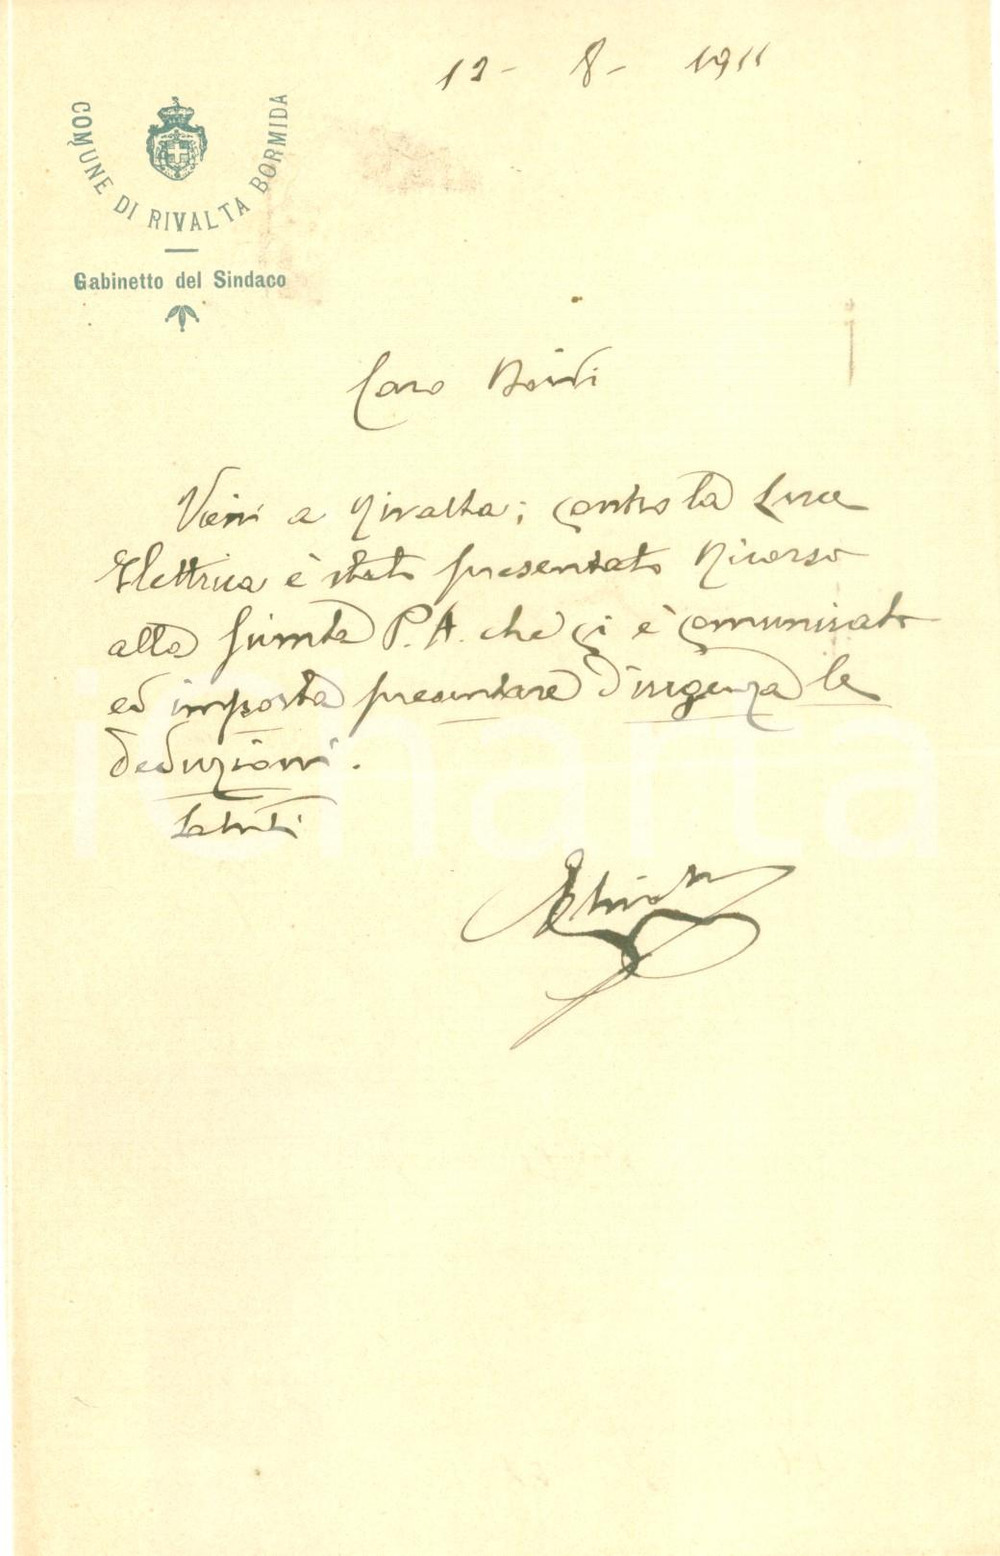 12 - 8 - 1911
COMUNE DI RIVALTA BORMIDA
Gabinetto del Sindaco
Caro
Vieni a Rivalta; contro la Luce
Elettrica è stato presentato Ricorso
alla Giunta P. A. che ci è comunicato
ed importa presentare d'urgenza le
deduzioni.
Saluti